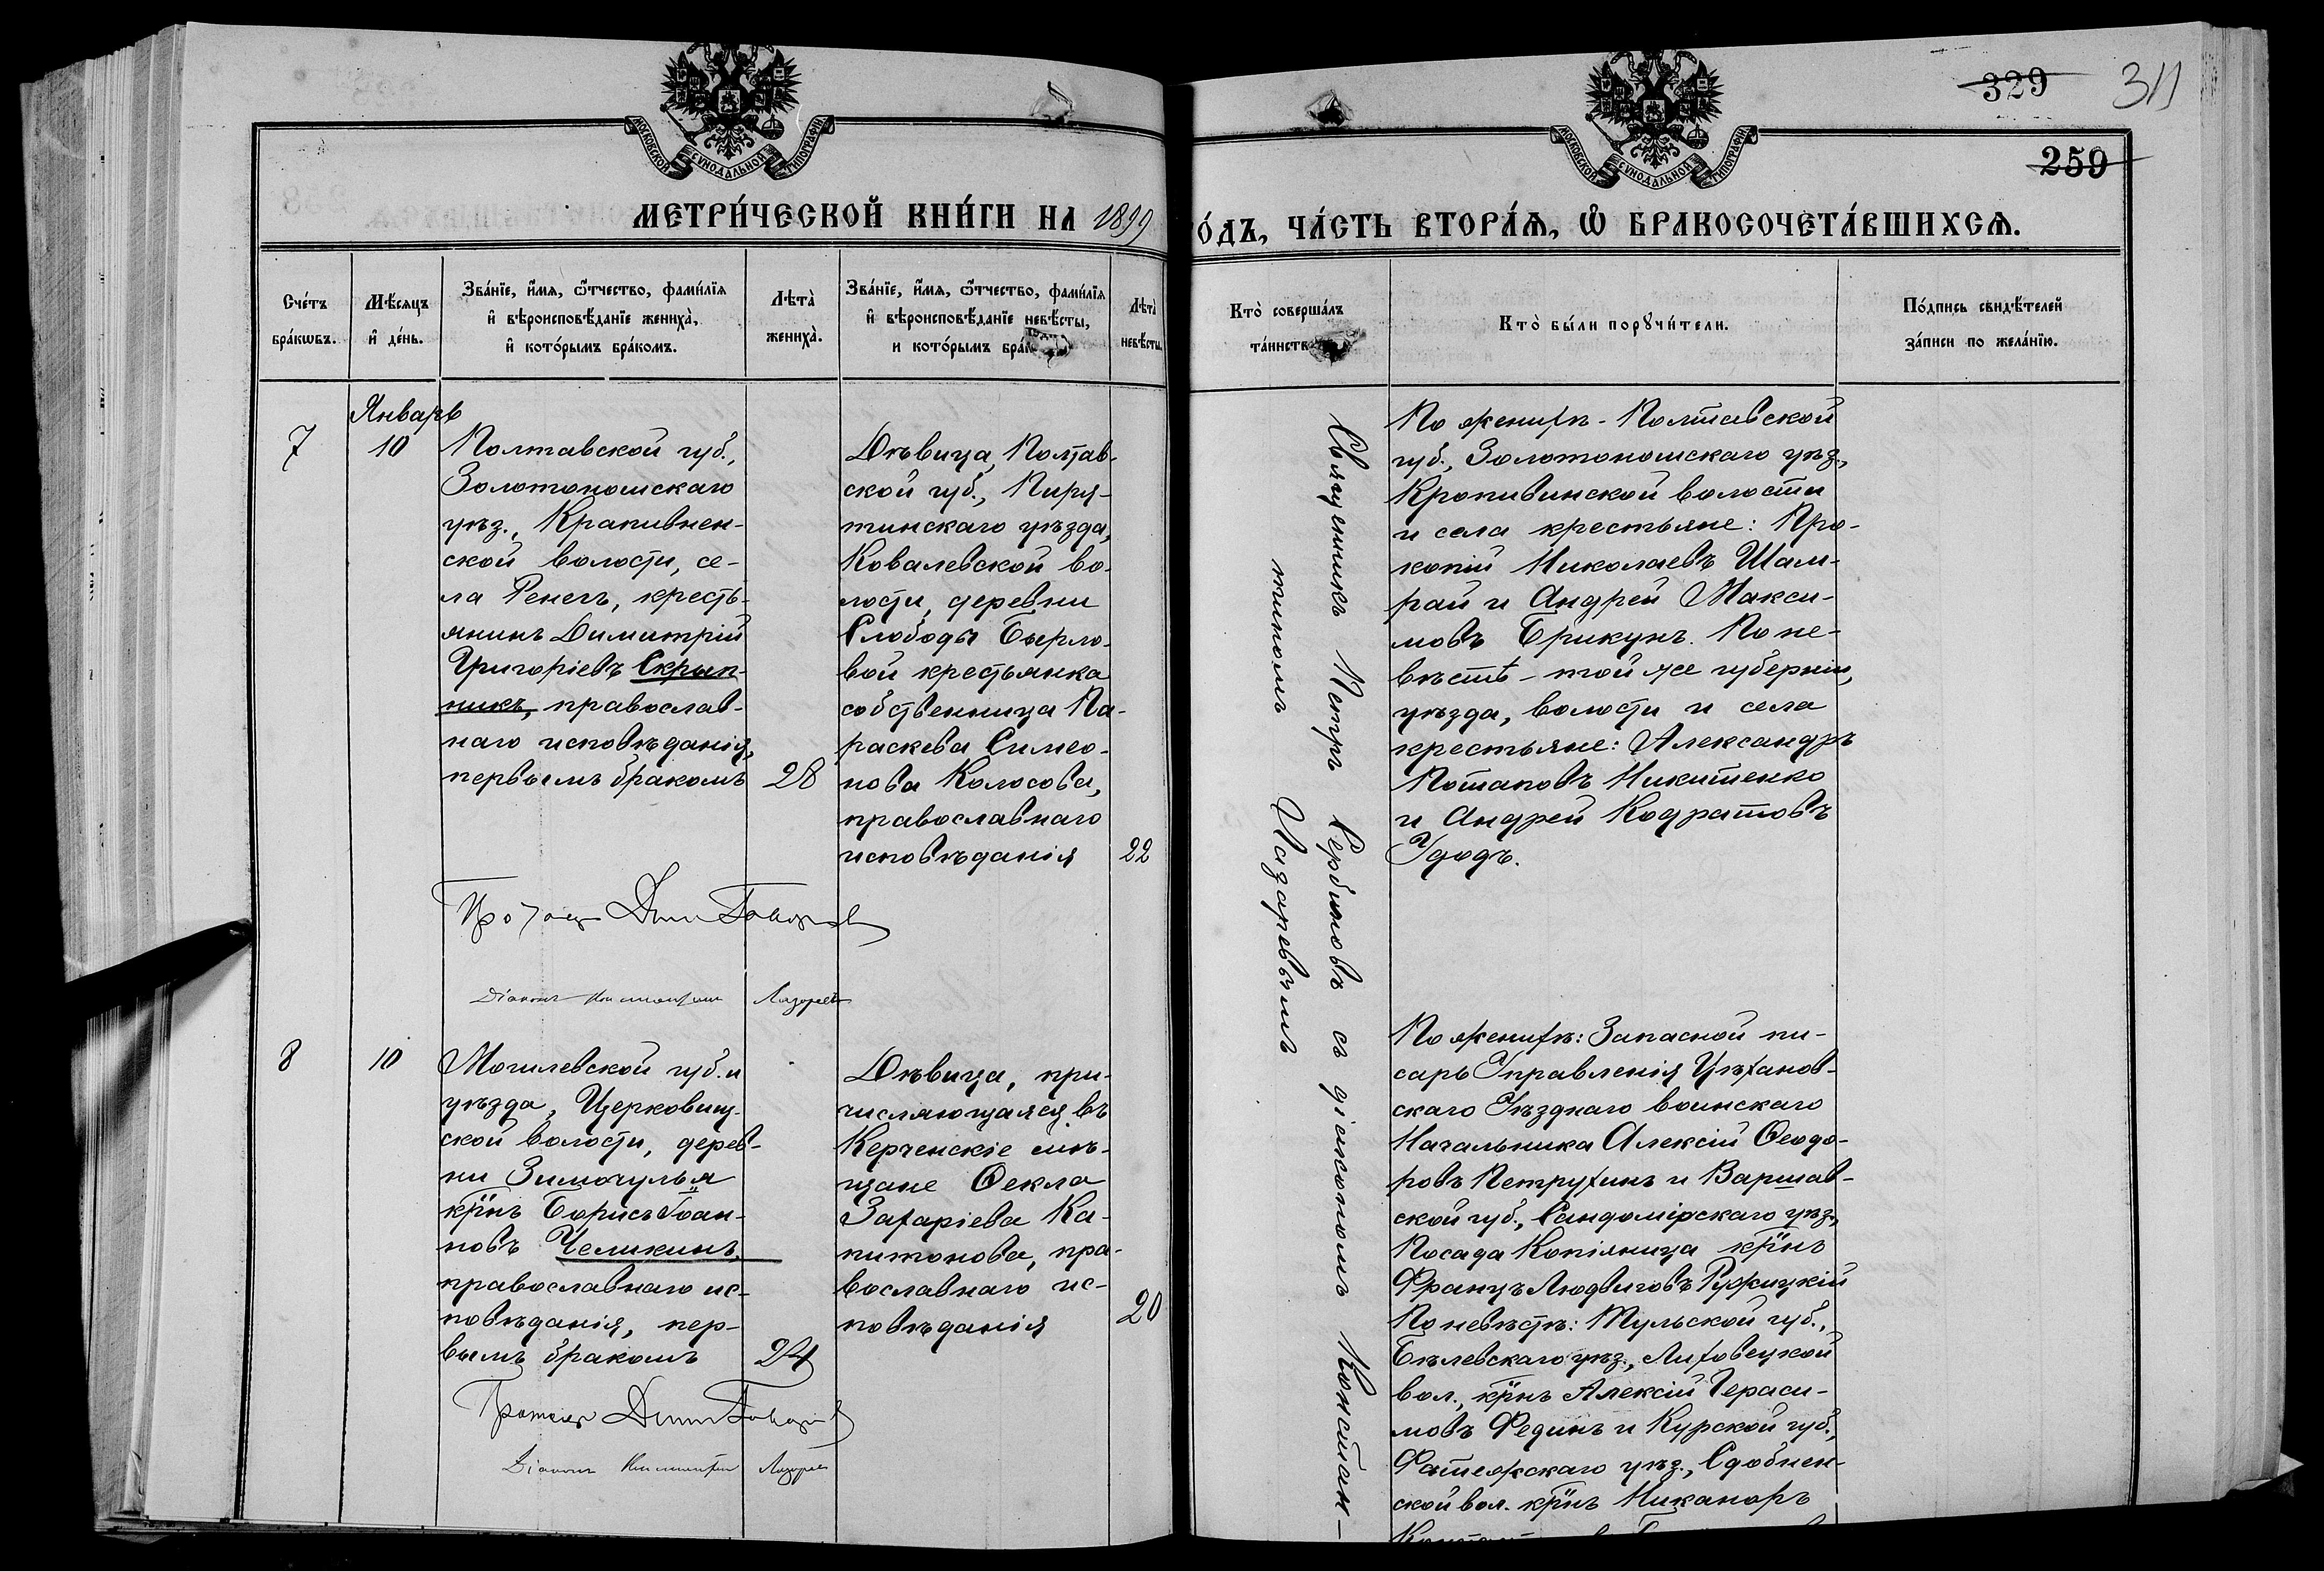 329 311
259
МОСКОВСКОЙ СѴНОДАЛЬНОЙ ТИПОГРАФІИ
МОСКОВСКОЙ СѴНОДАЛЬНОЙ ТИПОГРАФІИ
МЕТРИ́ЧЕСКОЙ КНИ́ГИ НА 1899
О́ДЪ, ЧА́СТЬ ВТОРА́Ѧ, Ѡ҆ БРАКОСОЧЕТА́ВШИХСѦ.
Сче́тъ
бра́кѡвъ.
Мѣ́сяцъ
и҆ де́нь.
Зва́нїе, и҆́мя, ѻ҆́тчество, фами́лїя
и҆ вѣроисповѣ́данїе жениха̀,
и҆ кото́рымъ бра́комъ.
Лѣта̀
жениха̀.
Зва́нїе, и҆́мя, ѻ҆́тчество, фами́лїя
и҆ вѣроисповѣ́данїе невѣ́сты,
и кото́рымъ бра́к
Лѣта̀
невѣ́сты.
Кто̀ соверша́лъ
та́инств
Кто̀ бы́ли порꙋчи́тели.
По́дпись свидѣ́телей
за́писи по жела́нїю.
Январь
7
10
Полтавской губ.,
Золотоношскаго
уѣз., Крапивнен-
ской волости, се-
ла Ренегъ, кресть-
янинъ Димитрій
Григоріевъ Скрып-
никъ, православ-
наго исповѣданія,
первымъ бракомъ
28
Дѣвица, Полтав-
ской губ., Пиря-
тинскаго уѣзда,
Ковалевской во-
лости, деревни
Слободы Бырло-
вой крестьянка
собственница Па-
раскева Симео-
нова Колосова,
православнаго
исповѣданія
22
Діаконъ Константинъ Лазаревъ
Священникъ Петръ Сербиновъ съ діакономъ Констан-
тиномъ Лазаревымъ
По женихѣ - Полтавской
губ., Золотоношскаго уѣз.,
Кропивинской волости
и села крестьяне: Про-
копій Николаевъ Шам-
рай и Андрей Макси-
мовъ Брикунъ. По не-
вѣстѣ - той же губерніи,
уѣзда, волости и села
крестьяне: Александръ
Потаповъ Никитенко
и Андрей Кодратовъ
Удодъ.
8
10
Могилевской губ. и
уѣзда, Церковищ-
ской волости, дерев-
ни Зимочулья
крнъ Борисъ Іоан-
новъ Челикинъ,
православнаго ис-
повѣданія, пер-
вымъ бракомъ
24
Дѣвица, при-
числяющаяся въ
Керченскіе мѣ-
щане Ѳекла
Захаріева Ка-
питонова, пра-
вославнаго ис-
повѣданія
20
Діаконъ Константинъ Лазаревъ
По женихѣ: Запасной пи-
сарь Управленія Цѣханов-
скаго Уѣзднаго воинскаго
Начальника Алексій Ѳеодо-
ровъ Петрухинъ и Варшав-
ской губ., Сандомірскаго уѣз.,
Посада Копіяница крнъ
Францъ Людвиговъ Ружицкій
По невѣстѣ: Тульской губ.,
Бѣлевскаго уѣз., Литовецкой
вол., крнъ Алексій Гераси-
мовъ Фединъ и Курской губ.,
Фатежскаго уѣз., Сдобнен-
ской вол. крнъ Никаноръ